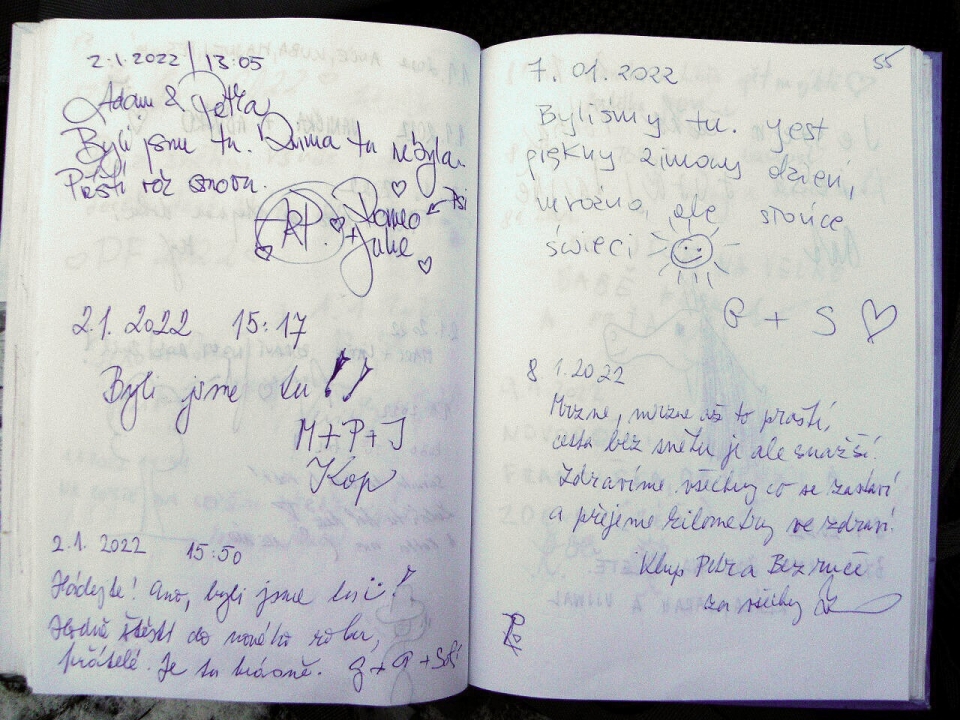 2.1.2022 | 13:05
Adam & Petra
Byli jsme tu. Zima tu nebyla.
Příští rok znovu.
AP. + Romeo ← Psi
Julie
2.1. 2022 15:17
Byli jsme tu!!
M+P+J
Kop
2.1. 2022 15:50
Hádejte! Ano, byli jsme tu!
Hodně štěstí do nového roku,
přátelé. Je tu krásně.
55
7. 01. 2022
Byliśmy tu. Jest
piękny zimowy dzień,
mroźno, ale słońce
świeci
G + S
8 1.2022
Mrzne, mrzne až to praští,
cesta bez sněhu je ale snažší.
Zdravíme všechny co se zastaví
a přejeme kilometry ve zdraví!
Klub Petra Bezruče
za všechny